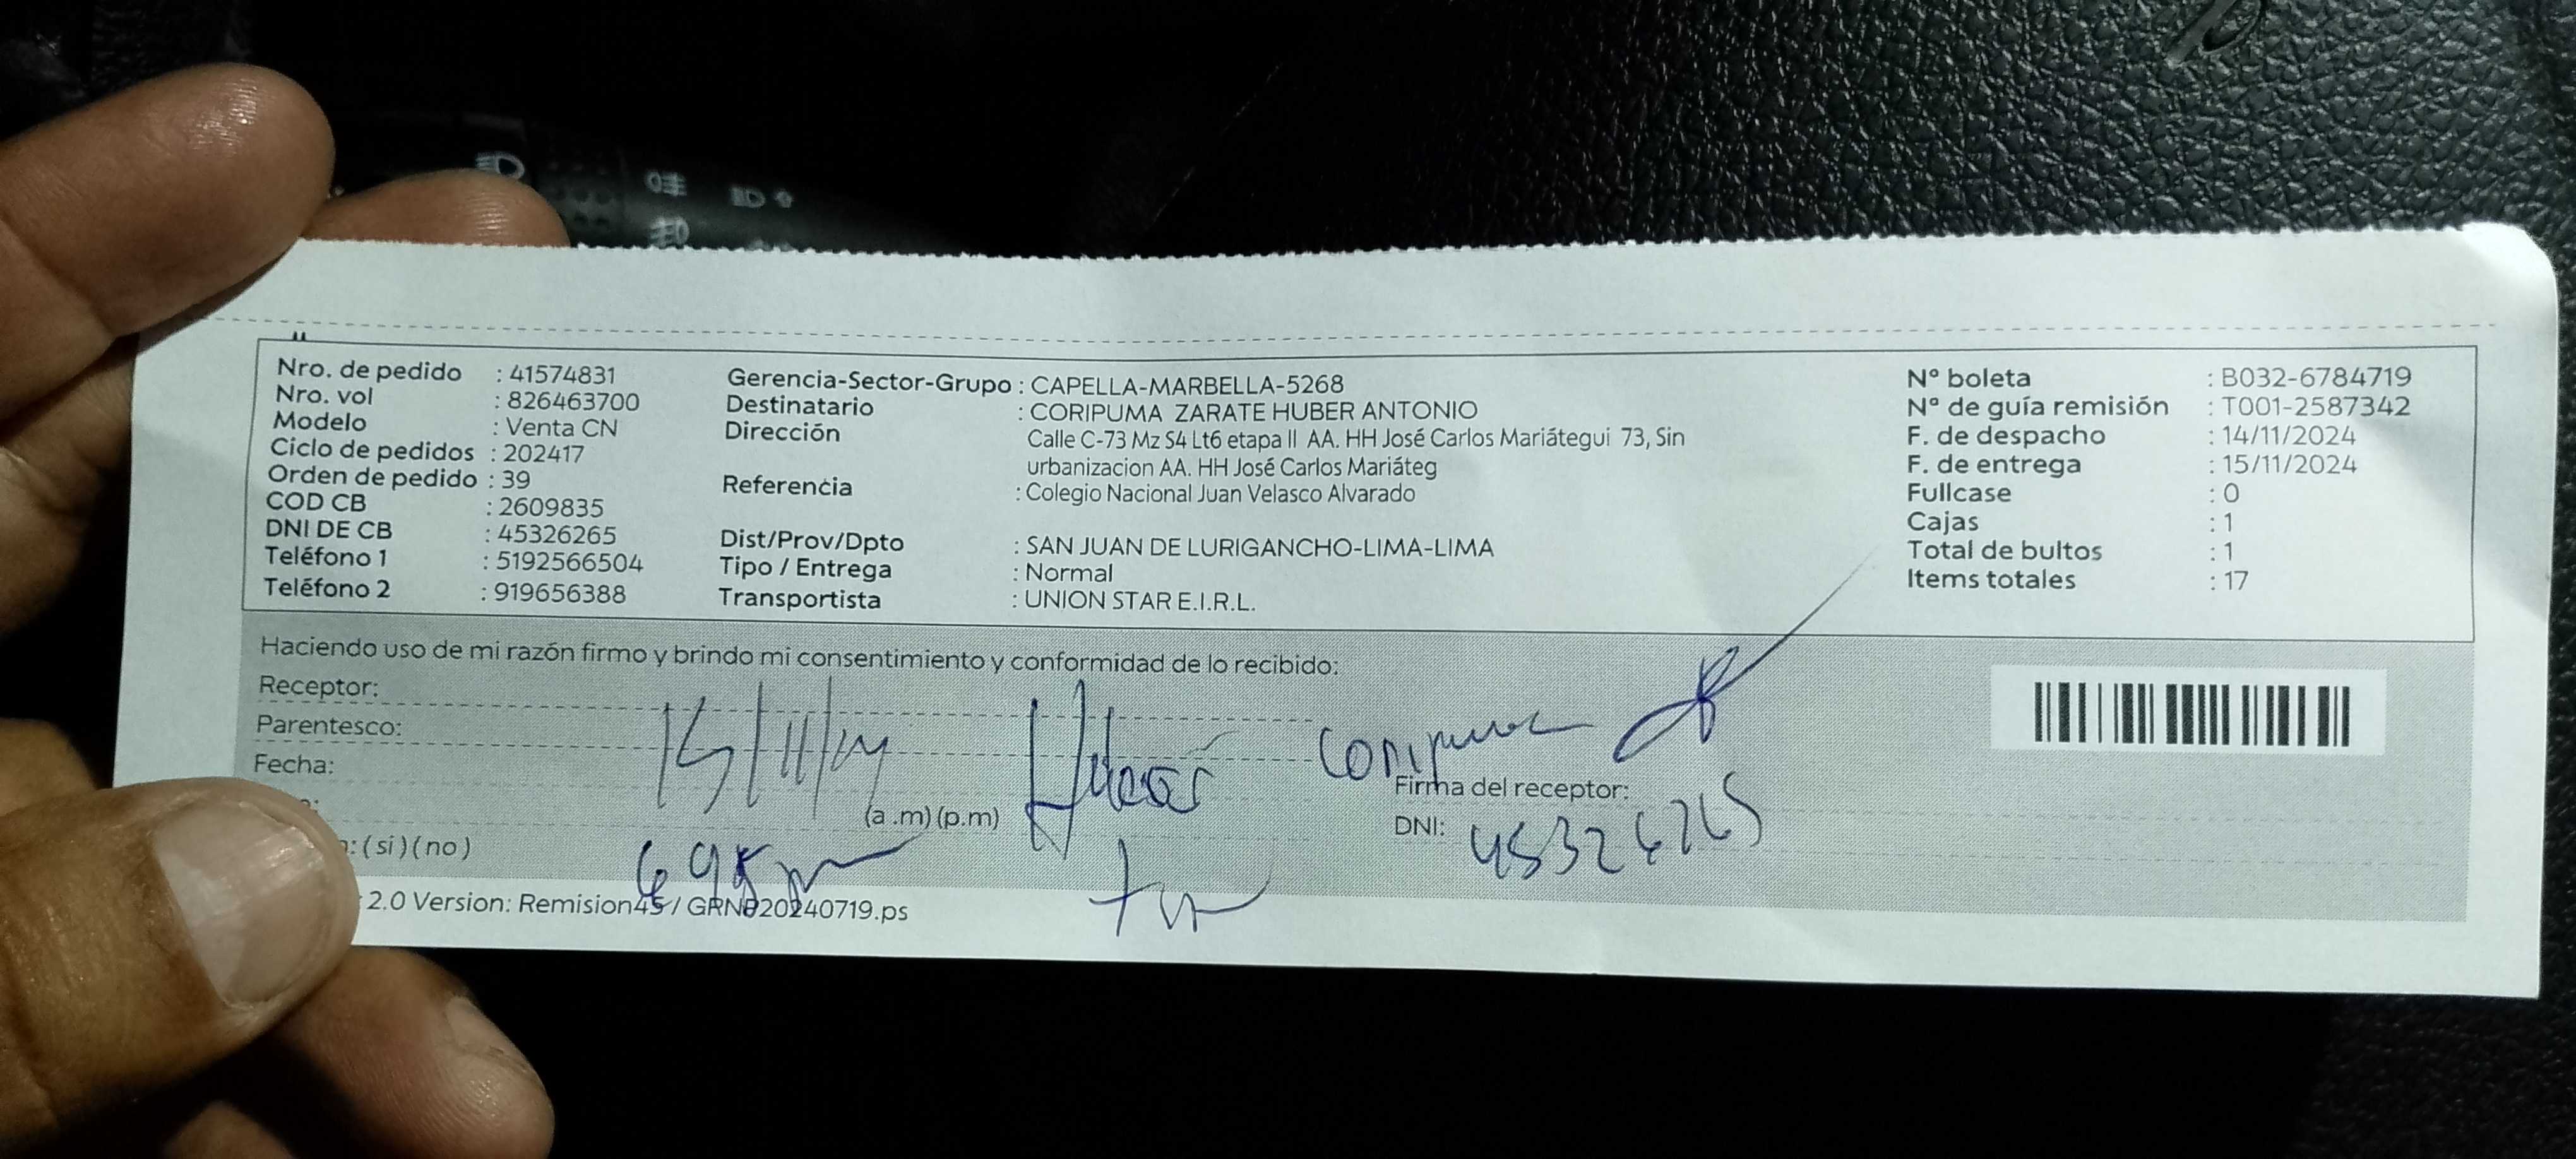 Nro. de pedido : 41574831
Nro. vol : 826463700
Modelo : Venta CN
Ciclo de pedidos : 202417
Orden de pedido : 39
COD CB : 2609835
DNI DE CB : 45326265
Teléfono 1 : 5192566504
Teléfono 2 : 919656388
Gerencia-Sector-Grupo : CAPELLA-MARBELLA-5268
Destinatario : CORIPUMA ZARATE HUBER ANTONIO
Dirección Calle C-73 Mz S4 Lt6 etapa II AA. HH José Carlos Mariátegui 73, Sin
urbanizacion AA. HH José Carlos Mariáteg
Referencia : Colegio Nacional Juan Velasco Alvarado
Dist/Prov/Dpto : SAN JUAN DE LURIGANCHO-LIMA-LIMA
Tipo / Entrega : Normal
Transportista : UNION STAR E.I.R.L.
N° boleta : B032-6784719
N° de guía remisión : T001-2587342
F. de despacho : 14/11/2024
F. de entrega : 15/11/2024
Fullcase : 0
Cajas : 1
Total de bultos : 1
Items totales : 17
Haciendo uso de mi razón firmo y brindo mi consentimiento y conformidad de lo recibido:
Receptor:
Parentesco:
Fecha: 15/11/24
(a .m) (p.m)
: ( si ) ( no )
Huber Coripuma
Firma del receptor:
DNI: 45326265
2.0 Version: Remision45 / GRN020240719.ps